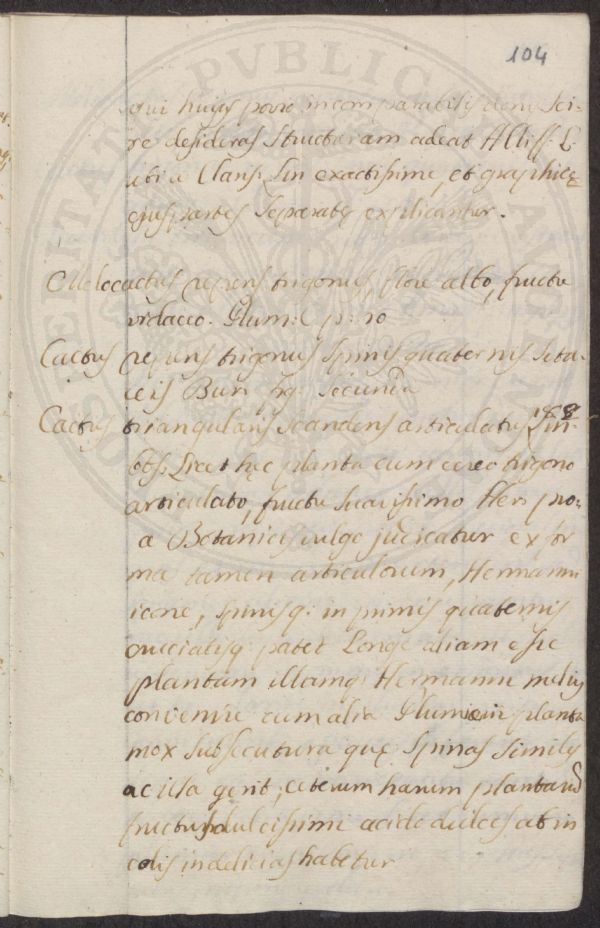 104
qui hujus porro incomparabilis dom Sci-
re desideras Structuram adeat
Clariss: Lin exactissime, et graphice
ejus partes Separatę explicantur.
Melocactus repens trigonus, flore albo, fructu
violaceo. Plum: C p: 10
Cactus repens trigonus Spinis quaternis Seta-
ceis Bur: fig: Secunda
188
Cactus triangularis Scandens articulatus Lin-
obs: Licet hęc planta cum cereo trigono
articulato, fructu Suavissimo Her: pro:
a Botanicis vulgo judicatur ex for
ma tamen articulorum, Hermanni
icone, Spinisq: in primis quaternis
patet Longe aliam esse
plantam illamq: Hermanni melius
convenire cum alia Plumieri planta
mox Subsecutura quę Spinas Similes
ac illa gerit, ceterum harum plantarum
fructus dulcissimi acido dulces ab in
colis in delicias habetur